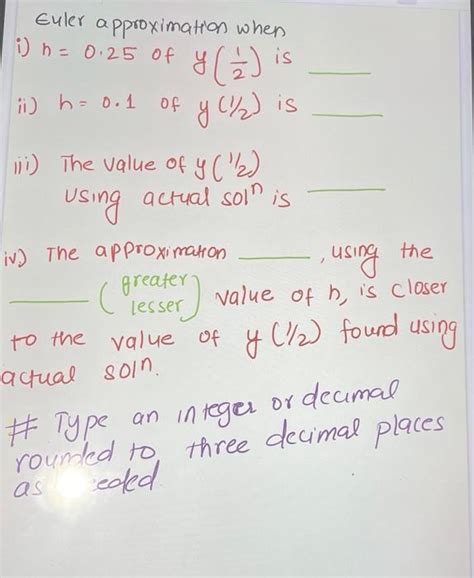 Euler approximation when
i) h = 0.25 of y(1/2) is ____
ii) h = 0.1 of y(1/2) is ____
iii) The value of y(1/2)
using actual solⁿ is ____
iv) The approximation ____, using the
____ (greater
lesser) value of h, is closer
to the value of y(1/2) found using
actual solⁿ.
# Type an integer or decimal
rounded to three decimal places
as eeded.